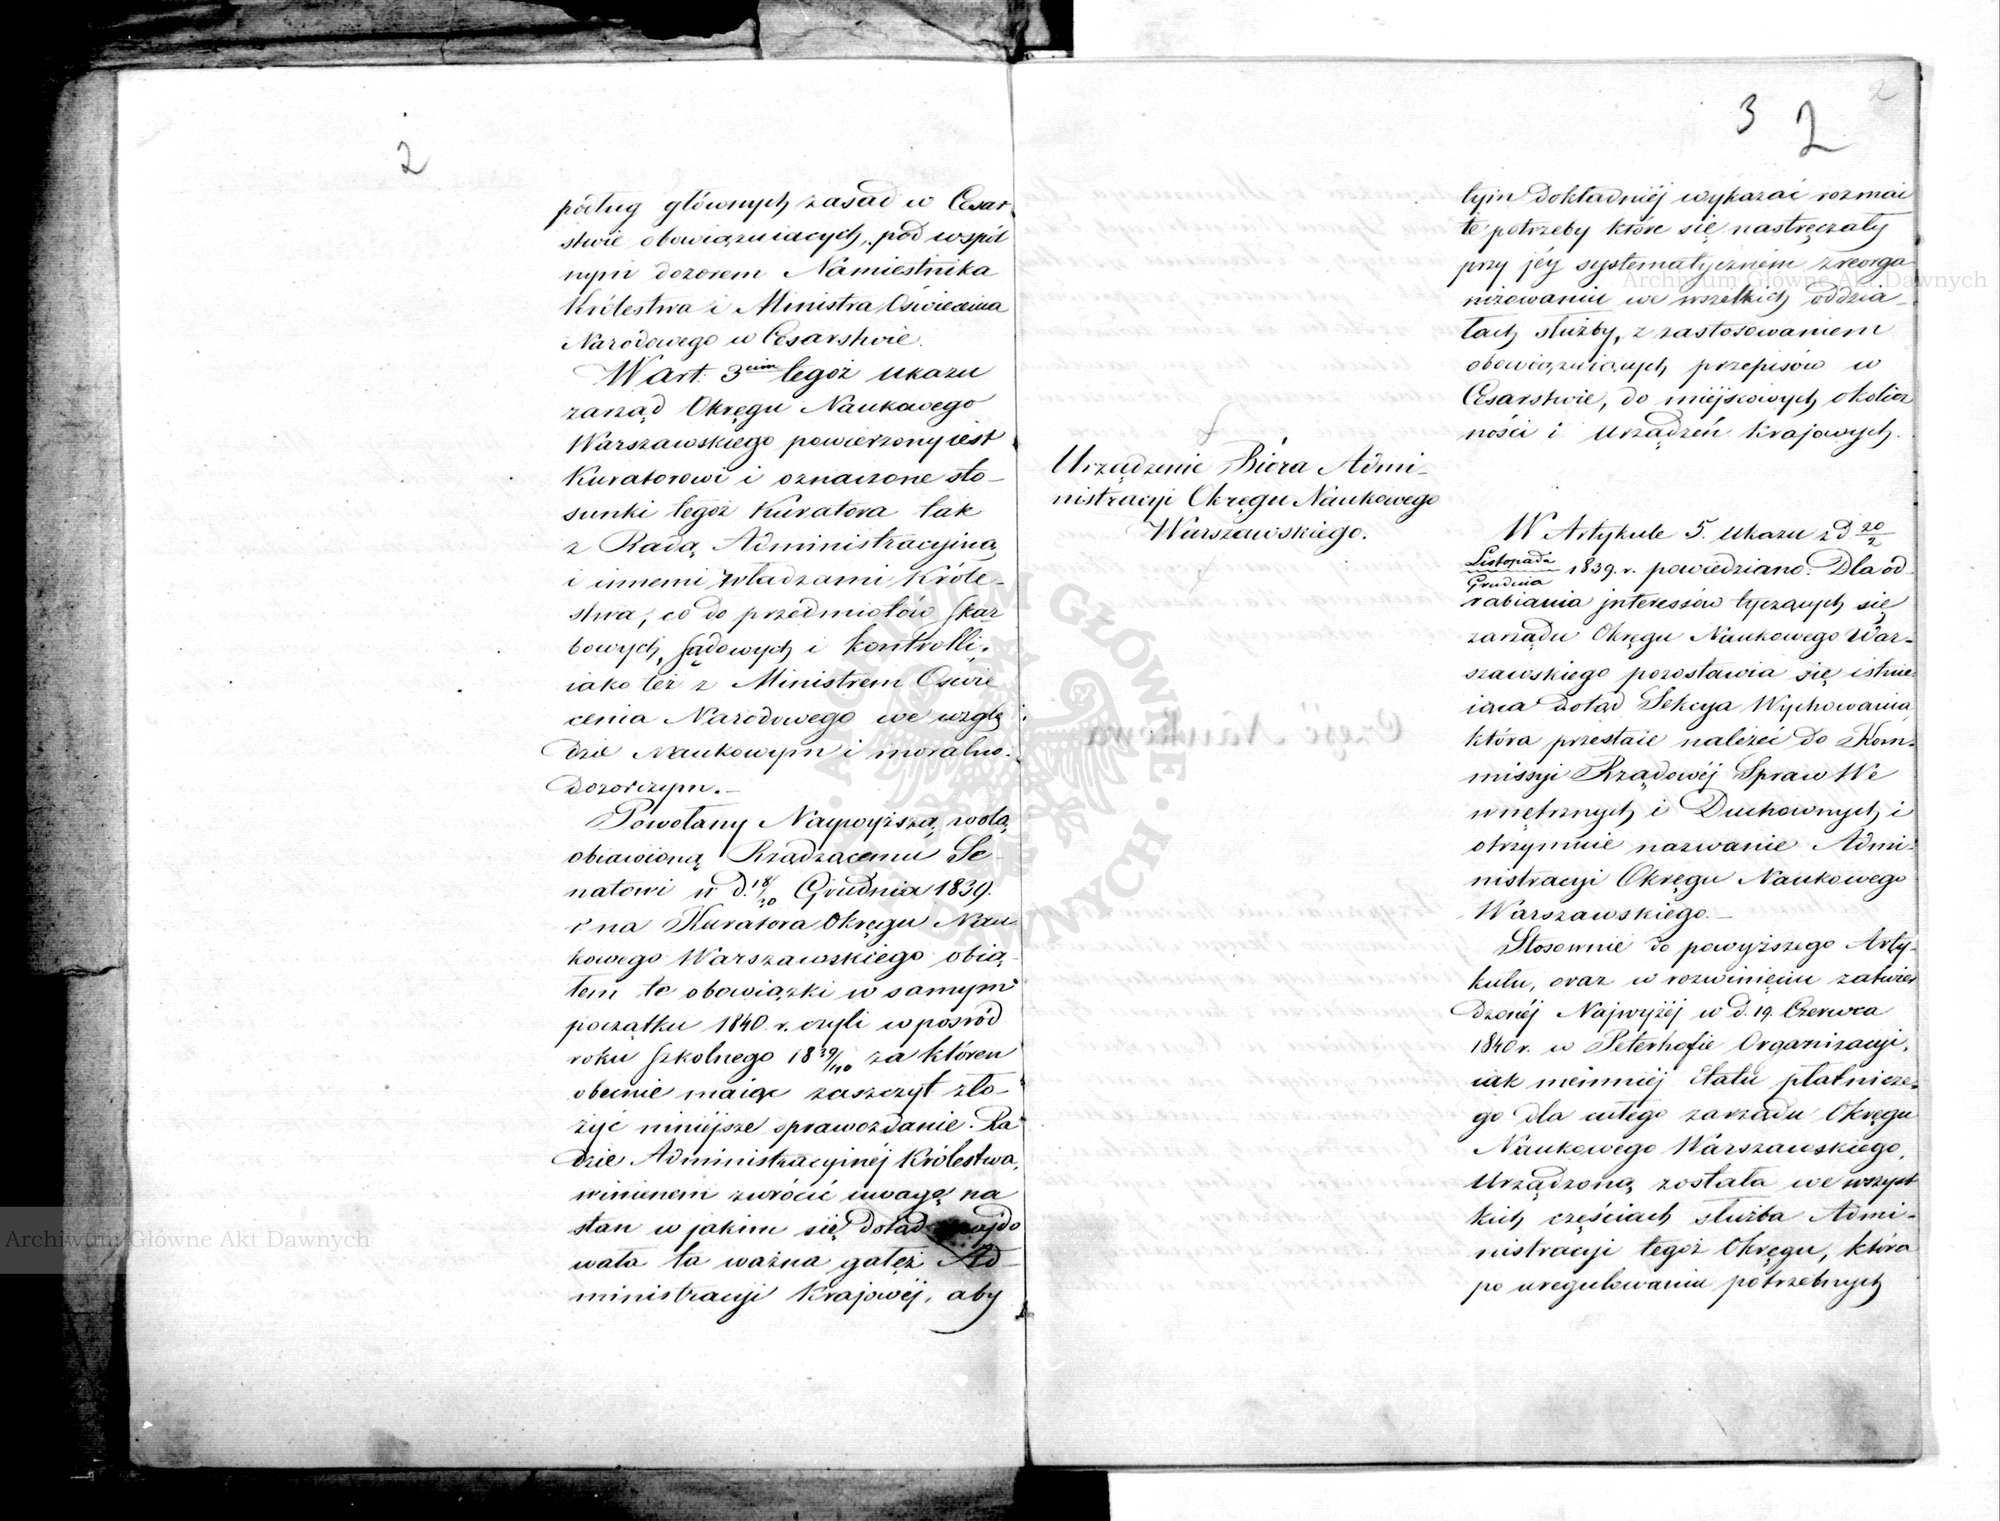 2
podług głównych zasad w Cesar-
stwie obowiązuiących, pod wspól
nym dozorem Namiestnika
Królestwa i Ministra Oświecenia
Narodowego w Cesarstwie.
W art: 3cim tegoż ukazu
zarząd Okręgu Naukowego
Warszawskiego powierzony iest
Kuratorowi i oznaczone sto-
sunki tegoż Kuratora tak
z Radą Administracyiną
i innemi władzami Króle-
stwa, co do przedmiotów skar
bowych, sądowych i kontrolli,
iako też z Ministrem Oświe
cenia Narodowego we wzglę
dzie Naukowym i moralno-
dozorczym.-
Powołany Naywyższą wolą
obiawioną Rządzącemu Se-
natowi w d. 18/30 Grudnia 1839.
r na Kuratora Okręgu Nau-
kowego Warszawskiego obią-
łem te obowiązki w samym
początku 1840 r. czyli wpośród
roku szkolnego 1839/40 za któren
obecnie maiąc zaszczyt zło-
żyć niniejsze sprawozdanie Ra
dzie Administracyinéj Królestwa,
winienem zwrócić uwagę na
stan w jakim się dotąd znajdo
wała ta ważna gałęź Ad-
ministracyi Krajowéj, aby
3 2
2
tym dokładniéj wykazać rozmai
te potrzeby które się nastręczały
przy jéj systematyczném zreorga
nizowaniu we wszelkich oddzia-
łach służby, z zastosowaniem
obowiązuiących przepisów w
Cesarstwie, do miéjscowych okolicz
ności i urządzeń krajowych.
Urządzenie Bióra Admi-
nistracyi Okręgu Naukowego
Warszawskiego.
W Artykule 5. ukazu z d 20/2
Listopada/Grudnia 1839. r. powiedziano: Dla od
rabiania interessów tyczących się
zarządu Okręgu Naukowego War-
szawskiego pozostawia się istnie-
iąca dotąd Sekcya Wychowania,
która przestaie należeć do Kom-
missyi Rządowéj Spraw We
wnętrznych i Duchownych i
otrzymuie nazwanie Admi-
nistracyi Okręgu Naukowego
Warszawskiego.-
Stosownie do powyższego Arty-
kułu, oraz w rozwinięciu zatwier
dzonéj Najwyżéj w d. 19. Czerwca
1840 r. w Péterhofie Organizacyi,
iak niemniéj Etatu płatnicze-
go dla całego zarządu Okręgu
Naukowego Warszawskiego,
urządzoną została we wszyst
kich częściach służba Admi-
nistracyi tegoż Okręgu, która
po uregulowaniu potrzebnych
Archiwum Główne Akt Dawnych
Archiwum Główne Akt Dawnych